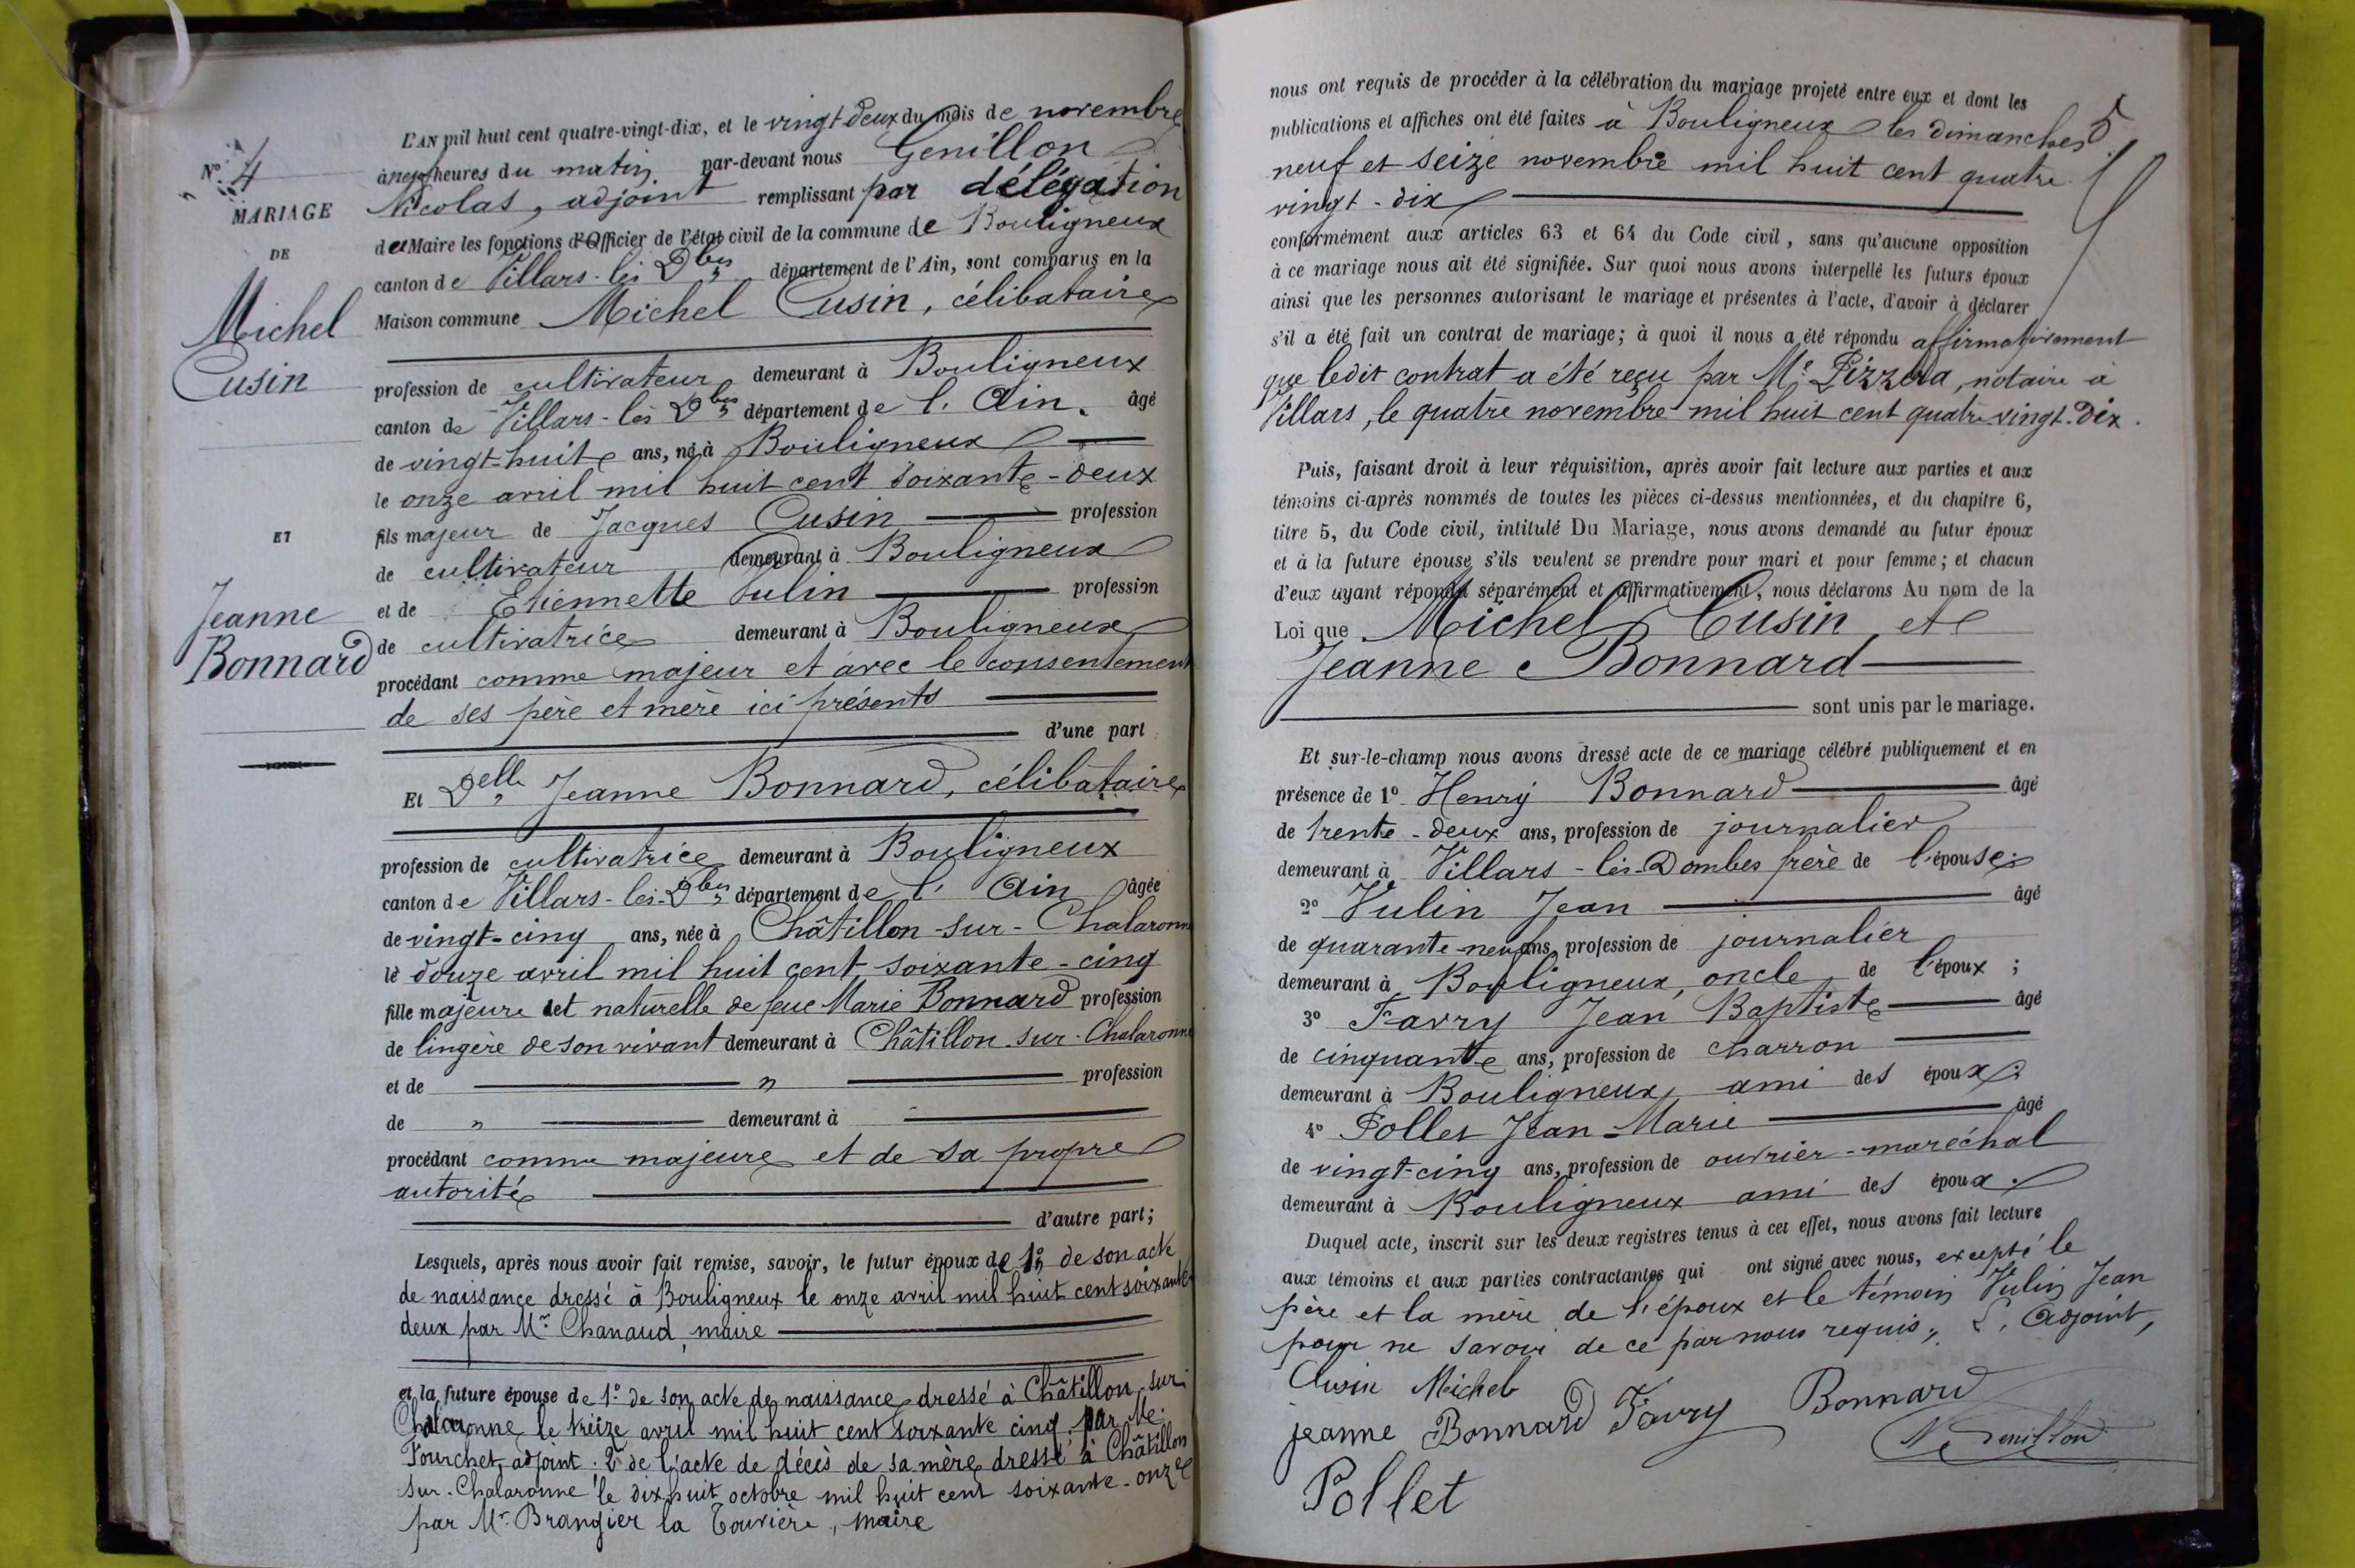 No 4
MARIAGE
DE
Michel
Cusin
ET
Jeanne
Bonnard
L'AN mil huit cent quatre-vingt-dix, et le vingt deux du mois de novembre
à neuf heures du matin par-devant nous Genillon
Nicolas, adjoint remplissant par délégation
du Maire les fonctions d'Officier de l'état civil de la commune de Bouligneux
canton de Villars-les Dbes département de l'Ain, sont comparus en la
Maison commune Michel Cusin, célibataire
profession de cultivateur demeurant à Bouligneux
canton de Villars-les Dbes département de l'Ain. âgé
de vingt-huit ans, né à Bouligneux
le onze avril mil huit cent soixante-deux
fils majeur de Jacques Cusin profession
de cultivateur demeurant à Bouligneux
et de Etiennette Vulin profession
de cultivatrice demeurant à Bouligneux
procédant comme majeur et avec le consentement
de ses père et mère ici présents
d'une part
Et Delle Jeanne Bonnard, célibataire
profession de cultivatrice demeurant à Bouligneux
canton de Villars-les-Dbes département de l'Ain âgée
de vingt-cinq ans, née à Châtillon-sur-Chalaronne
le douze avril mil huit cent soixante-cinq
fille majeure et naturelle de feue Marie Bonnard profession
de lingère de son vivant demeurant à Châtillon-sur-Chalaronne
et de " profession
de " demeurant à
procédant comme majeure et de sa propre
autorité
d'autre part;
Lesquels, après nous avoir fait remise, savoir, le futur époux de 1° de son acte
de naissance dressé à Bouligneux le onze avril mil huit cent soixante
deux par Mr Chanaud, maire
et la future épouse de 1° de son acte de naissance dressé à Châtillon sur
Chalaronne le treize avril mil huit cent soixante cinq par Me
Fourchet adjoint. 2° de l'acte de décès de sa mère dressé à Châtillon
sur-Chalaronne le dix huit octobre mil huit cent soixante-onze
par Mr Brangier la Touvière, maire
nous ont requis de procéder à la célébration du mariage projeté entre eux et dont les
publications et affiches ont été faites à Bouligneux les dimanches 5
neuf et seize novembre mil huit cent quatre
vingt-dix
conformément aux articles 63 et 64 du Code civil, sans qu'aucune opposition
à ce mariage nous ait été signifiée. Sur quoi nous avons interpellé les futurs époux
ainsi que les personnes autorisant le mariage et présentes à l'acte, d'avoir à déclarer
s'il a été fait un contrat de mariage; à quoi il nous a été répondu affirmativement
que ledit contrat a été reçu par Me Pizzera, notaire à
Villars, le quatre novembre mil huit cent quatre vingt-dix.
Puis, faisant droit à leur réquisition, après avoir fait lecture aux parties et aux
témoins ci-après nommés de toutes les pièces ci-dessus mentionnées, et du chapitre 6,
titre 5, du Code civil, intitulé Du Mariage, nous avons demandé au futur époux
et à la future épouse s'ils veulent se prendre pour mari et pour femme; et chacun
d'eux ayant répondu séparément et affirmativement, nous déclarons Au nom de la
Loi que Michel Cusin et
Jeanne Bonnard
sont unis par le mariage.
Et sur-le-champ nous avons dressé acte de ce mariage célébré publiquement et en
présence de 1° Henry Bonnard âgé
de trente-deux ans, profession de journalier
demeurant à Villars-les-Dombes frère de l'épouse;
2° Vulin Jean âgé
de quarante-neuf ans, profession de journalier
demeurant à Bouligneux, oncle de l'époux;
3° Favry Jean Baptiste âgé
de cinquante ans, profession de charron
demeurant à Bouligneux, ami des époux;
4° Pollet Jean-Marie âgé
de vingt-cinq ans, profession de ouvrier-maréchal
demeurant à Bouligneux ami des époux.
Duquel acte, inscrit sur les deux registres tenus à cet effet, nous avons fait lecture
aux témoins et aux parties contractantes qui ont signé avec nous, excepté le
père et la mère de l'époux et le témoin Vulin Jean
pour ne savoir de ce par nous requis. L'adjoint,
Cusin Michel
jeanne Bonnard Favry Bonnard
N Genillon
Pollet